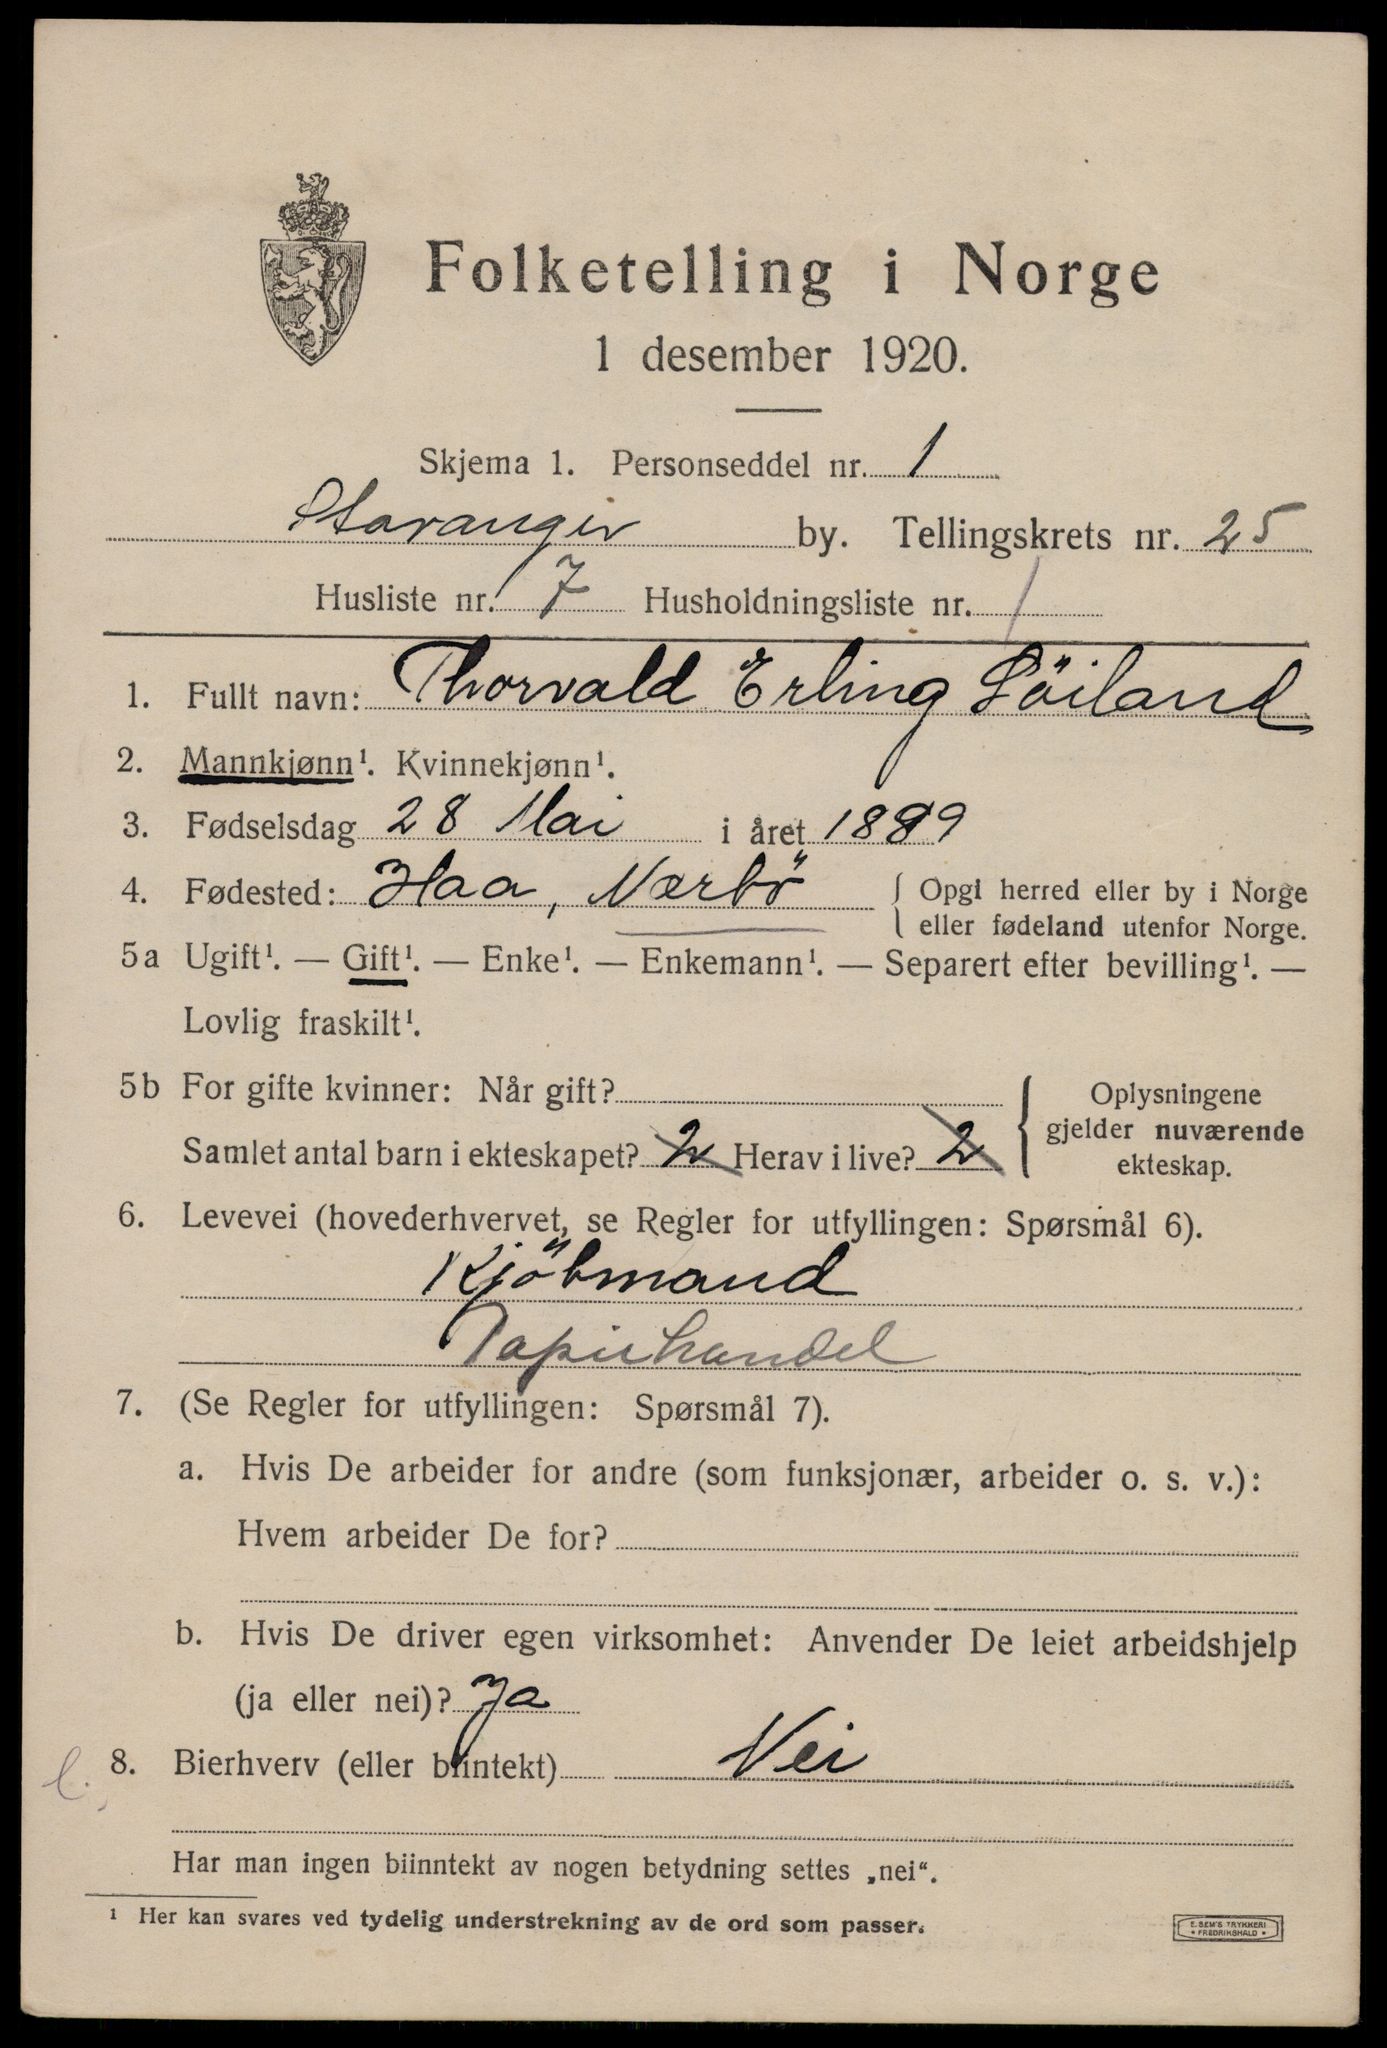 Folketelling i Norge
1 desember 1920.
Skjema 1. Personseddel nr. 1
Stavanger by. Tellingskrets nr. 25
Husliste nr. 7 Husholdningsliste nr. 1
1. Fullt navn: Thorvald Erling Söiland
2. Mannkjønn¹. Kvinnekjønn¹.
3. Fødselsdag 28 Mai i året 1889
4. Fødested: Haa, Nærbö { Opgi herred eller by i Norge
{ eller fødeland utenfor Norge.
5a Ugift¹. — Gift¹. — Enke¹. — Enkemann¹. — Separert efter bevilling¹. —
Lovlig fraskilt¹.
5b For gifte kvinner: Når gift? { Oplysningene
gjelder nuværende
Samlet antal barn i ekteskapet? 2 Herav i live? 2
ekteskap.
6. Levevei (hovederhvervet, se Regler for utfyllingen: Spørsmål 6).
Kjöbmand
Papirhandel
7. (Se Regler for utfyllingen: Spørsmål 7).
a. Hvis De arbeider for andre (som funksjonær, arbeider o. s. v.):
Hvem arbeider De for?
b. Hvis De driver egen virksomhet: Anvender De leiet arbeidshjelp
(ja eller nei)? Ja
8. Bierhverv (eller biintekt) Nei
Har man ingen biinntekt av nogen betydning settes „nei“.
¹ Her kan svares ved tydelig understrekning av de ord som passer.
E. SEM'S TRYKKERI
* FREDRIKSHALD *